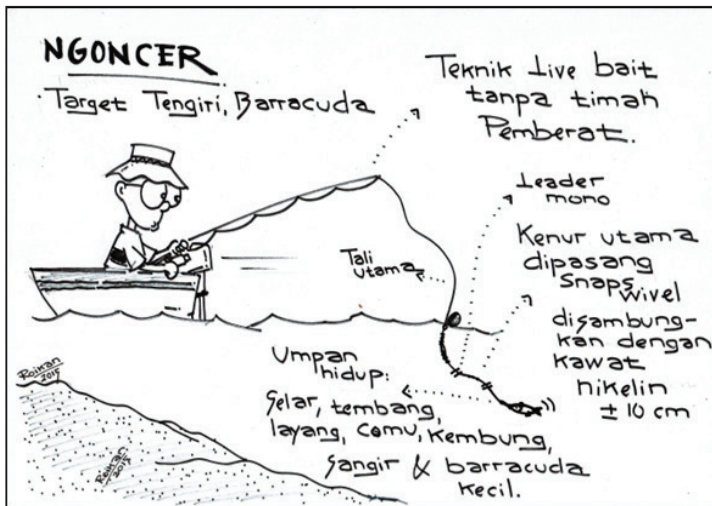 NGONCER
Target Tengiri, Barracuda
Teknik Live bait
tanpa timah
Pemberat.
Leader
mono
Tali
utama
Kenur utama
dipasang
Snaps
wivel
disambung-
kan dengan
kawat
nikelin
± 10 cm
Umpan
hidup:
Selar, tembang,
layang, Comu, Kembung,
Sangir & barracuda
kecil.
Roikan
2015
Roikan
2015